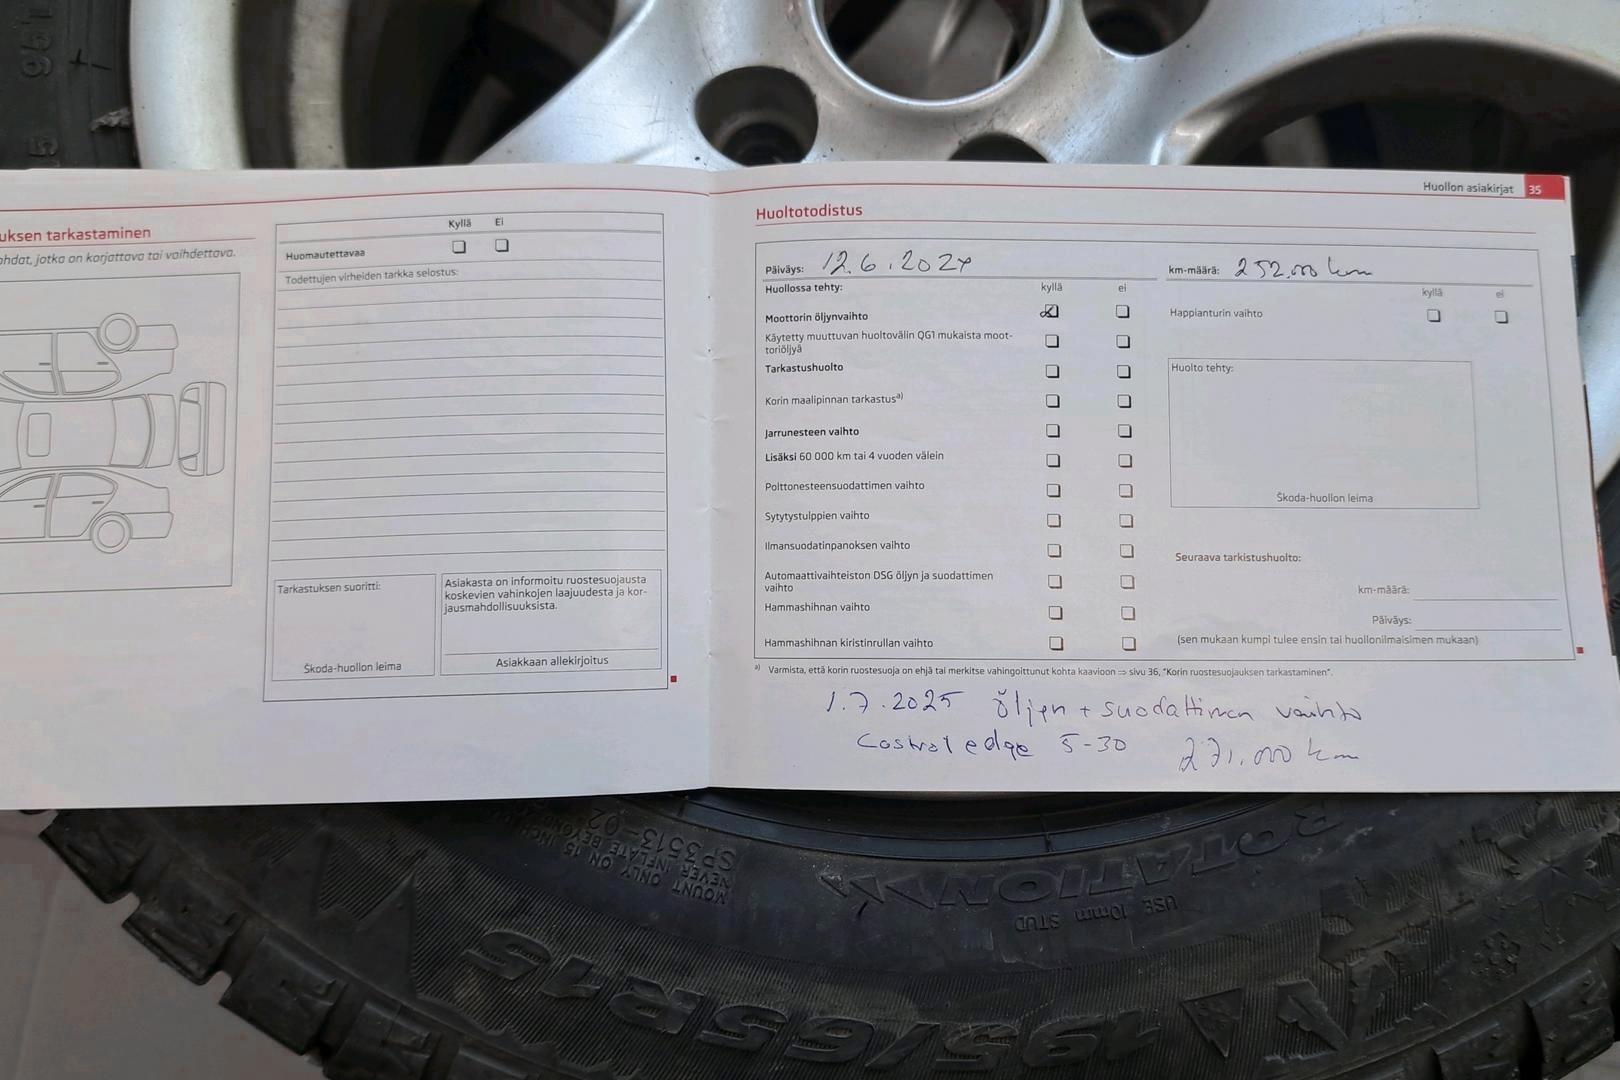 uksen tarkastaminen
ohdat, jotka on korjattava tai vaihdettava.
Kyllä Ei
Huomautettavaa
Todettujen virheiden tarkka selostus:
Tarkastuksen suoritti:
Škoda-huollon leima
Asiakasta on informoitu ruostesuojausta
koskevien vahinkojen laajuudesta ja kor-
jausmahdollisuuksista.
Asiakkaan allekirjoitus
Huollon asiakirjat 35
Huoltotodistus
Päiväys: 12.6.2024
km-määrä: 252.000 km
Huollossa tehty: kyllä ei
Moottorin öljynvaihto
Käytetty muuttuvan huoltovälin QG1 mukaista moot-
toriöljyä
Tarkastushuolto
Korin maalipinnan tarkastus a)
Jarrunesteen vaihto
Lisäksi 60 000 km tai 4 vuoden välein
Polttonesteensuodattimen vaihto
Sytytystulppien vaihto
Ilmansuodatinpanoksen vaihto
Automaattivaihteiston DSG öljyn ja suodattimen
vaihto
Hammashihnan vaihto
Hammashihnan kiristinrullan vaihto
kyllä ei
Happianturin vaihto
Huolto tehty:
Škoda-huollon leima
Seuraava tarkistushuolto:
km-määrä:
Päiväys:
(sen mukaan kumpi tulee ensin tai huollonilmaisimen mukaan)
a) Varmista, että korin ruostesuoja on ehjä tai merkitse vahingoittunut kohta kaavioon ⇒ sivu 36, "Korin ruostesuojauksen tarkastaminen".
1.7.2025 öljyn + suodattimen vaihto
Castrol edge 5-30 271.000 km
MOUNT ONLY ON 15 INCH
NEVER INFLATE BEYOND
SP3513-02
ROTATION
USE 10mm STUD
195/65R15